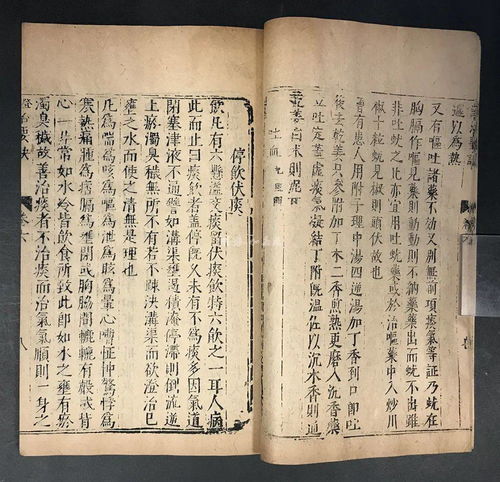 以為熱
又有嘔吐諸藥不効又別無前項痰氣等証乃蚘在
胸膈作嘔見藥則動動則不納藥藥出而蚘不出雖
非吐蚘之比亦宜用吐蚘藥或於治嘔藥中入炒川
椒十粒蚘見椒則頭伏故也
嘗有患人用附子理中湯四逆湯加丁香到口即吐
後去乾姜只參附加丁木二香煎熟更磨入沉香藥
吐定蓋虛痰氣凝結丁附既溫佐以沉木香則通
姜白术則泥
停飲伏痰
飲凡有六懸溢支痰留伏痰飲特六飲之一耳人病
此而止曰痰飲者蓋停既久未有不為痰多因氣道
閉塞津液不通譬如溝渠壅遏積淹停滯則倒流逆
上瘀濁臭穢無所不有若不疎決溝渠而欲澄治已
壅之水而使之清無是理也
凡為喘為咳為嘔為泄為眩為暈心嘈怔忡驚悸為
寒熱痛腫為痞膈為壅閉或胸脇間轆轆有聲或背
心一片常如水冷皆飲食所致此即如水之壅有於
濁臭穢故善治痰者不治痰而治氣氣順則一身之
證治要訣 卷六 八